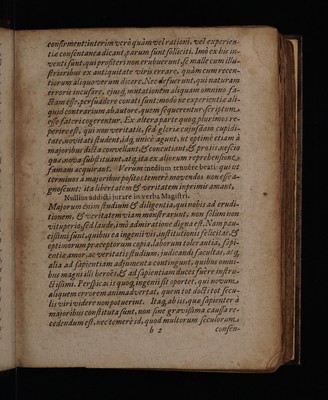 confirment: interim verò quàm vel rationi, vel experien-
tiæ consentanea dicant, parum sunt solliciti. Imò ex his in-
venti sunt, qui profiteri non erubuerunt, se malle cum illu-
strioribus ex antiquitate viris errare, quàm cum recen-
tiorum aliquo verum dicere. Nec defuerunt, qui naturam
erroris incusare, ejusq; mutationem aliquam omnino fa-
ctam esse, persuadere conati sunt: modo ne experientiæ ali-
quid contrarium ab autore, quem sequerentur, scriptum
esse faterecogerentur. Ex altera parte quoq; plurimos re-
perire est, qui non veritatis, sed gloriæ cujusdam cupidi-
tate, novitati student, idq; unicè agunt, ut optimè etiam à
majoribus dicta convellant, & concutiant, & pro iis nescio
quæ nova substituant, atq; ita ex aliorum reprehensione,
famam aucupari. Verùm medium tenuêre beati: qui nec
terminos à majoribus positos, temerè movendos non esse a-
gnoscunt: ita libertatem & veritatem in primis amant,
Nullius addicti jurare in verba Magistri.
Majorum enim studium & diligentia, qui nobis ad erudi-
tionem, & veritatem viam monstrarunt, non solùm non
vituperio, sed laude, imò admiratione digna est. Nam pau-
cissimi sunt, quibus ea ingenij vis, institutionis felicitas, &
optimorum præceptorum copia, laborum tolerantia, sapi-
entiæ amor, ac veritatis studium, judicandi facultas, atq;
alia ad sapientiam adjumenta contingunt, quibus omni-
bus magni illi heroës, & ad sapientiam duces fuêre instru-
ctissimi. Perspicacis quoq; ingenij sit oportet, qui novum
aliquem errorem animadvertat, quem tot docti tot secu-
lis viri videre non potuerint. Itaq; ab iis, quæ sapienter à
majoribus constituta sunt, non sine gravissima caussa re-
cedendum est, nec temerè id, quod multorum seculorum
b 2 consen-